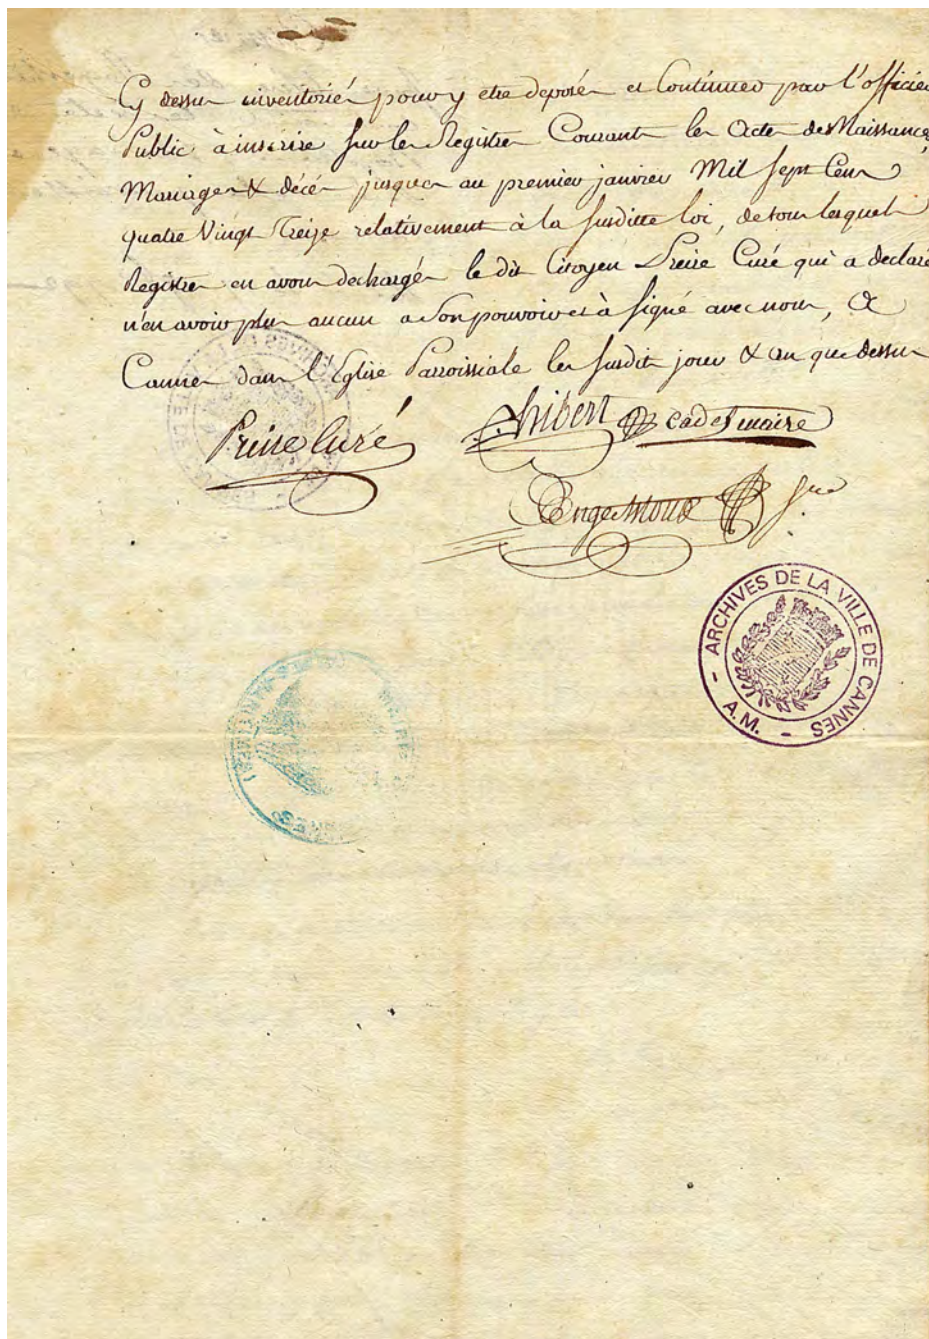 Cy dessus inventoriés pour y etre deposés et Continuer par l'officier
Public à inscrire sur les Registres Courants les Actes des Naissances,
Mariages & décés jusques au premier janvier Mil sept Cens
quatre Vingt Treize relativement à la susditte loi, de tous lesquels
Registres en avons dechargés le dit Citoyen Preire Curé qui a declaré
n'en avoir plus aucun a son pouvoir et à signé avec nous, A
Cannes dans l'Eglise Parroissiale les susdits jour & an que dessus
Preire Curé
hibert cadet maire
Sre
ARCHIVES DE LA VILLE DE CANNES
- A.M. -